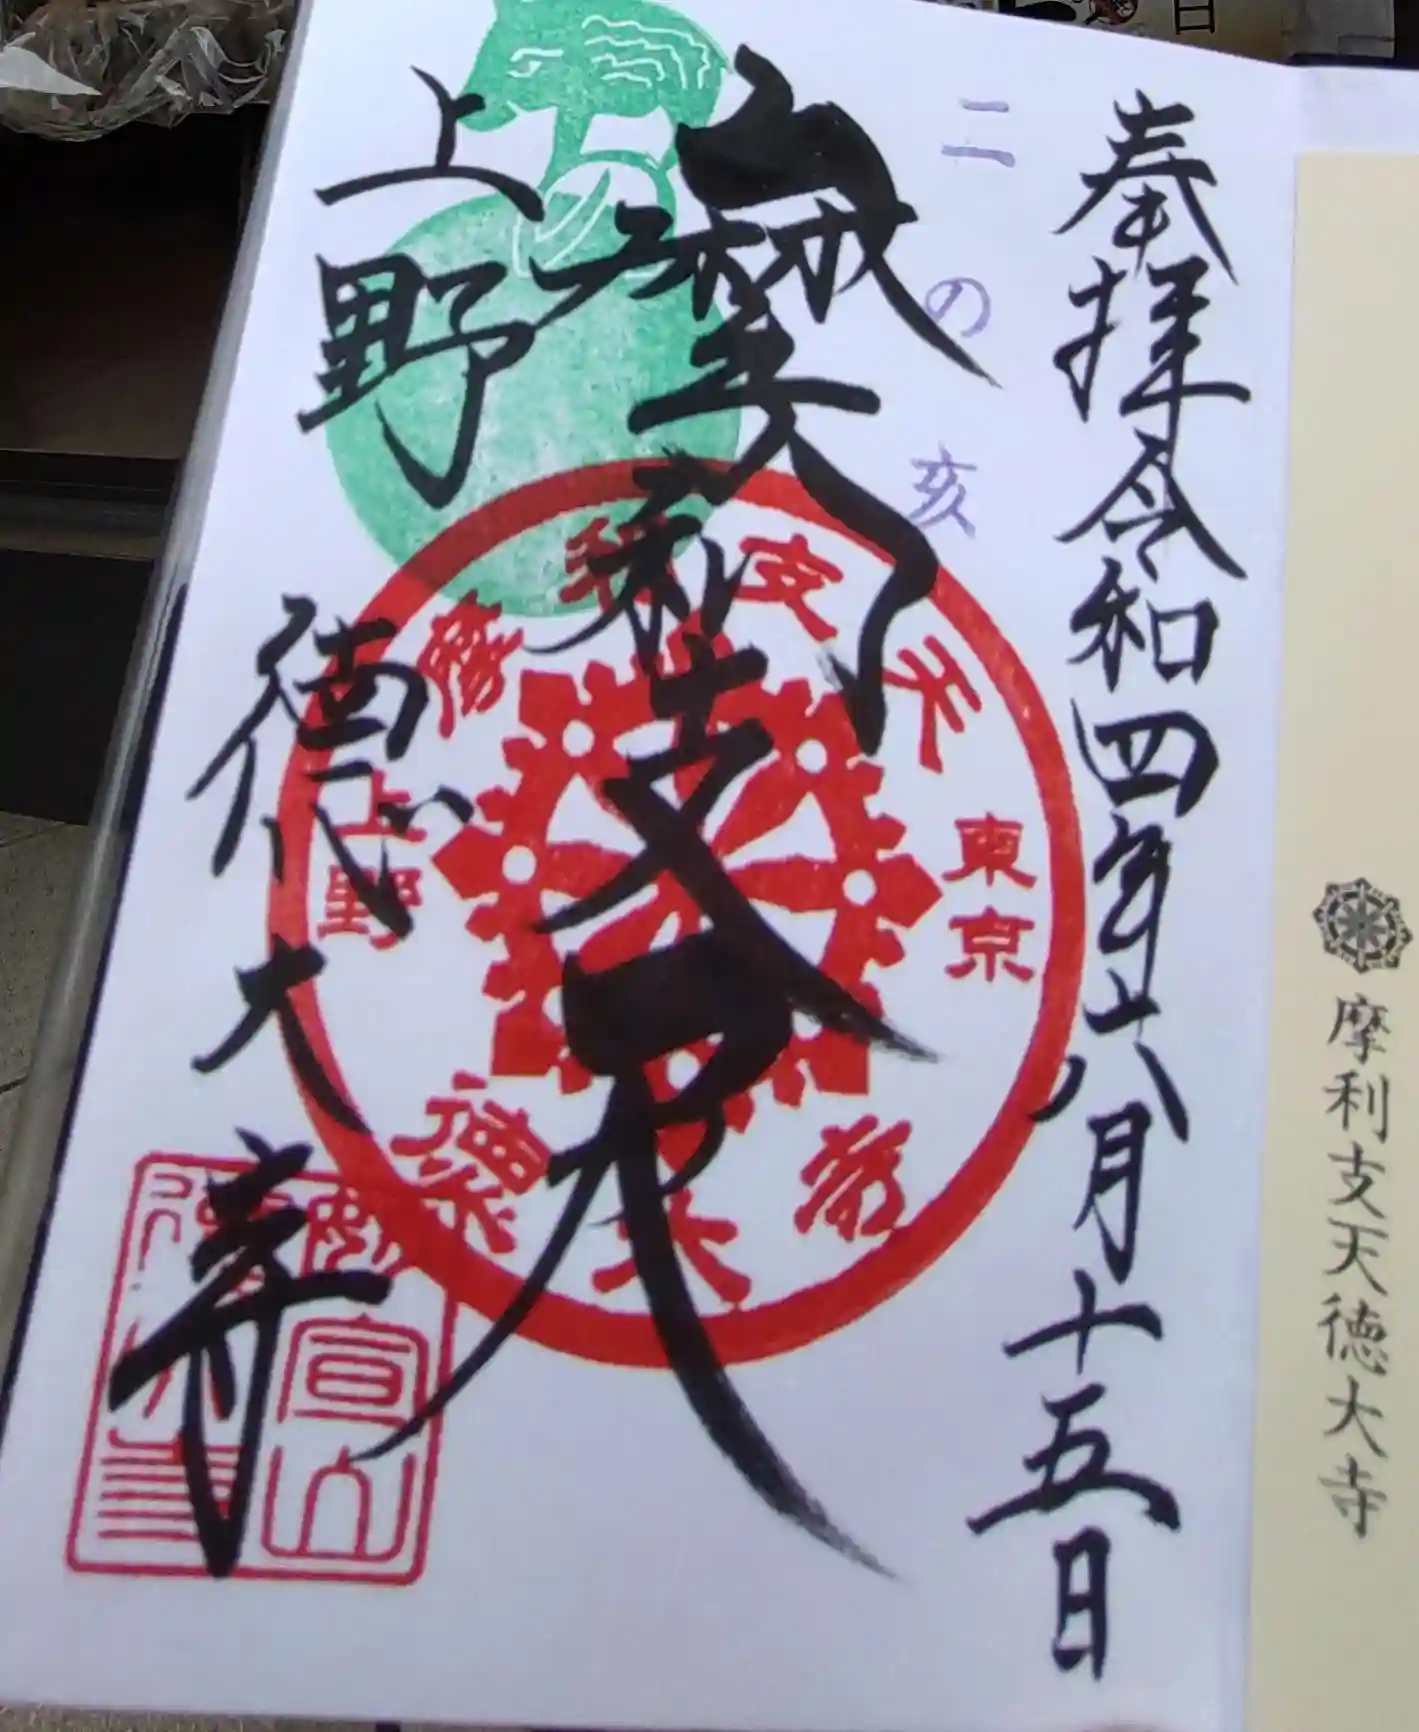 奉拝令和四年六月十五日
二の亥
摩利支天
上野
徳大寺
東京
摩利支天
上野
徳大寺
摩利支天徳大寺
日